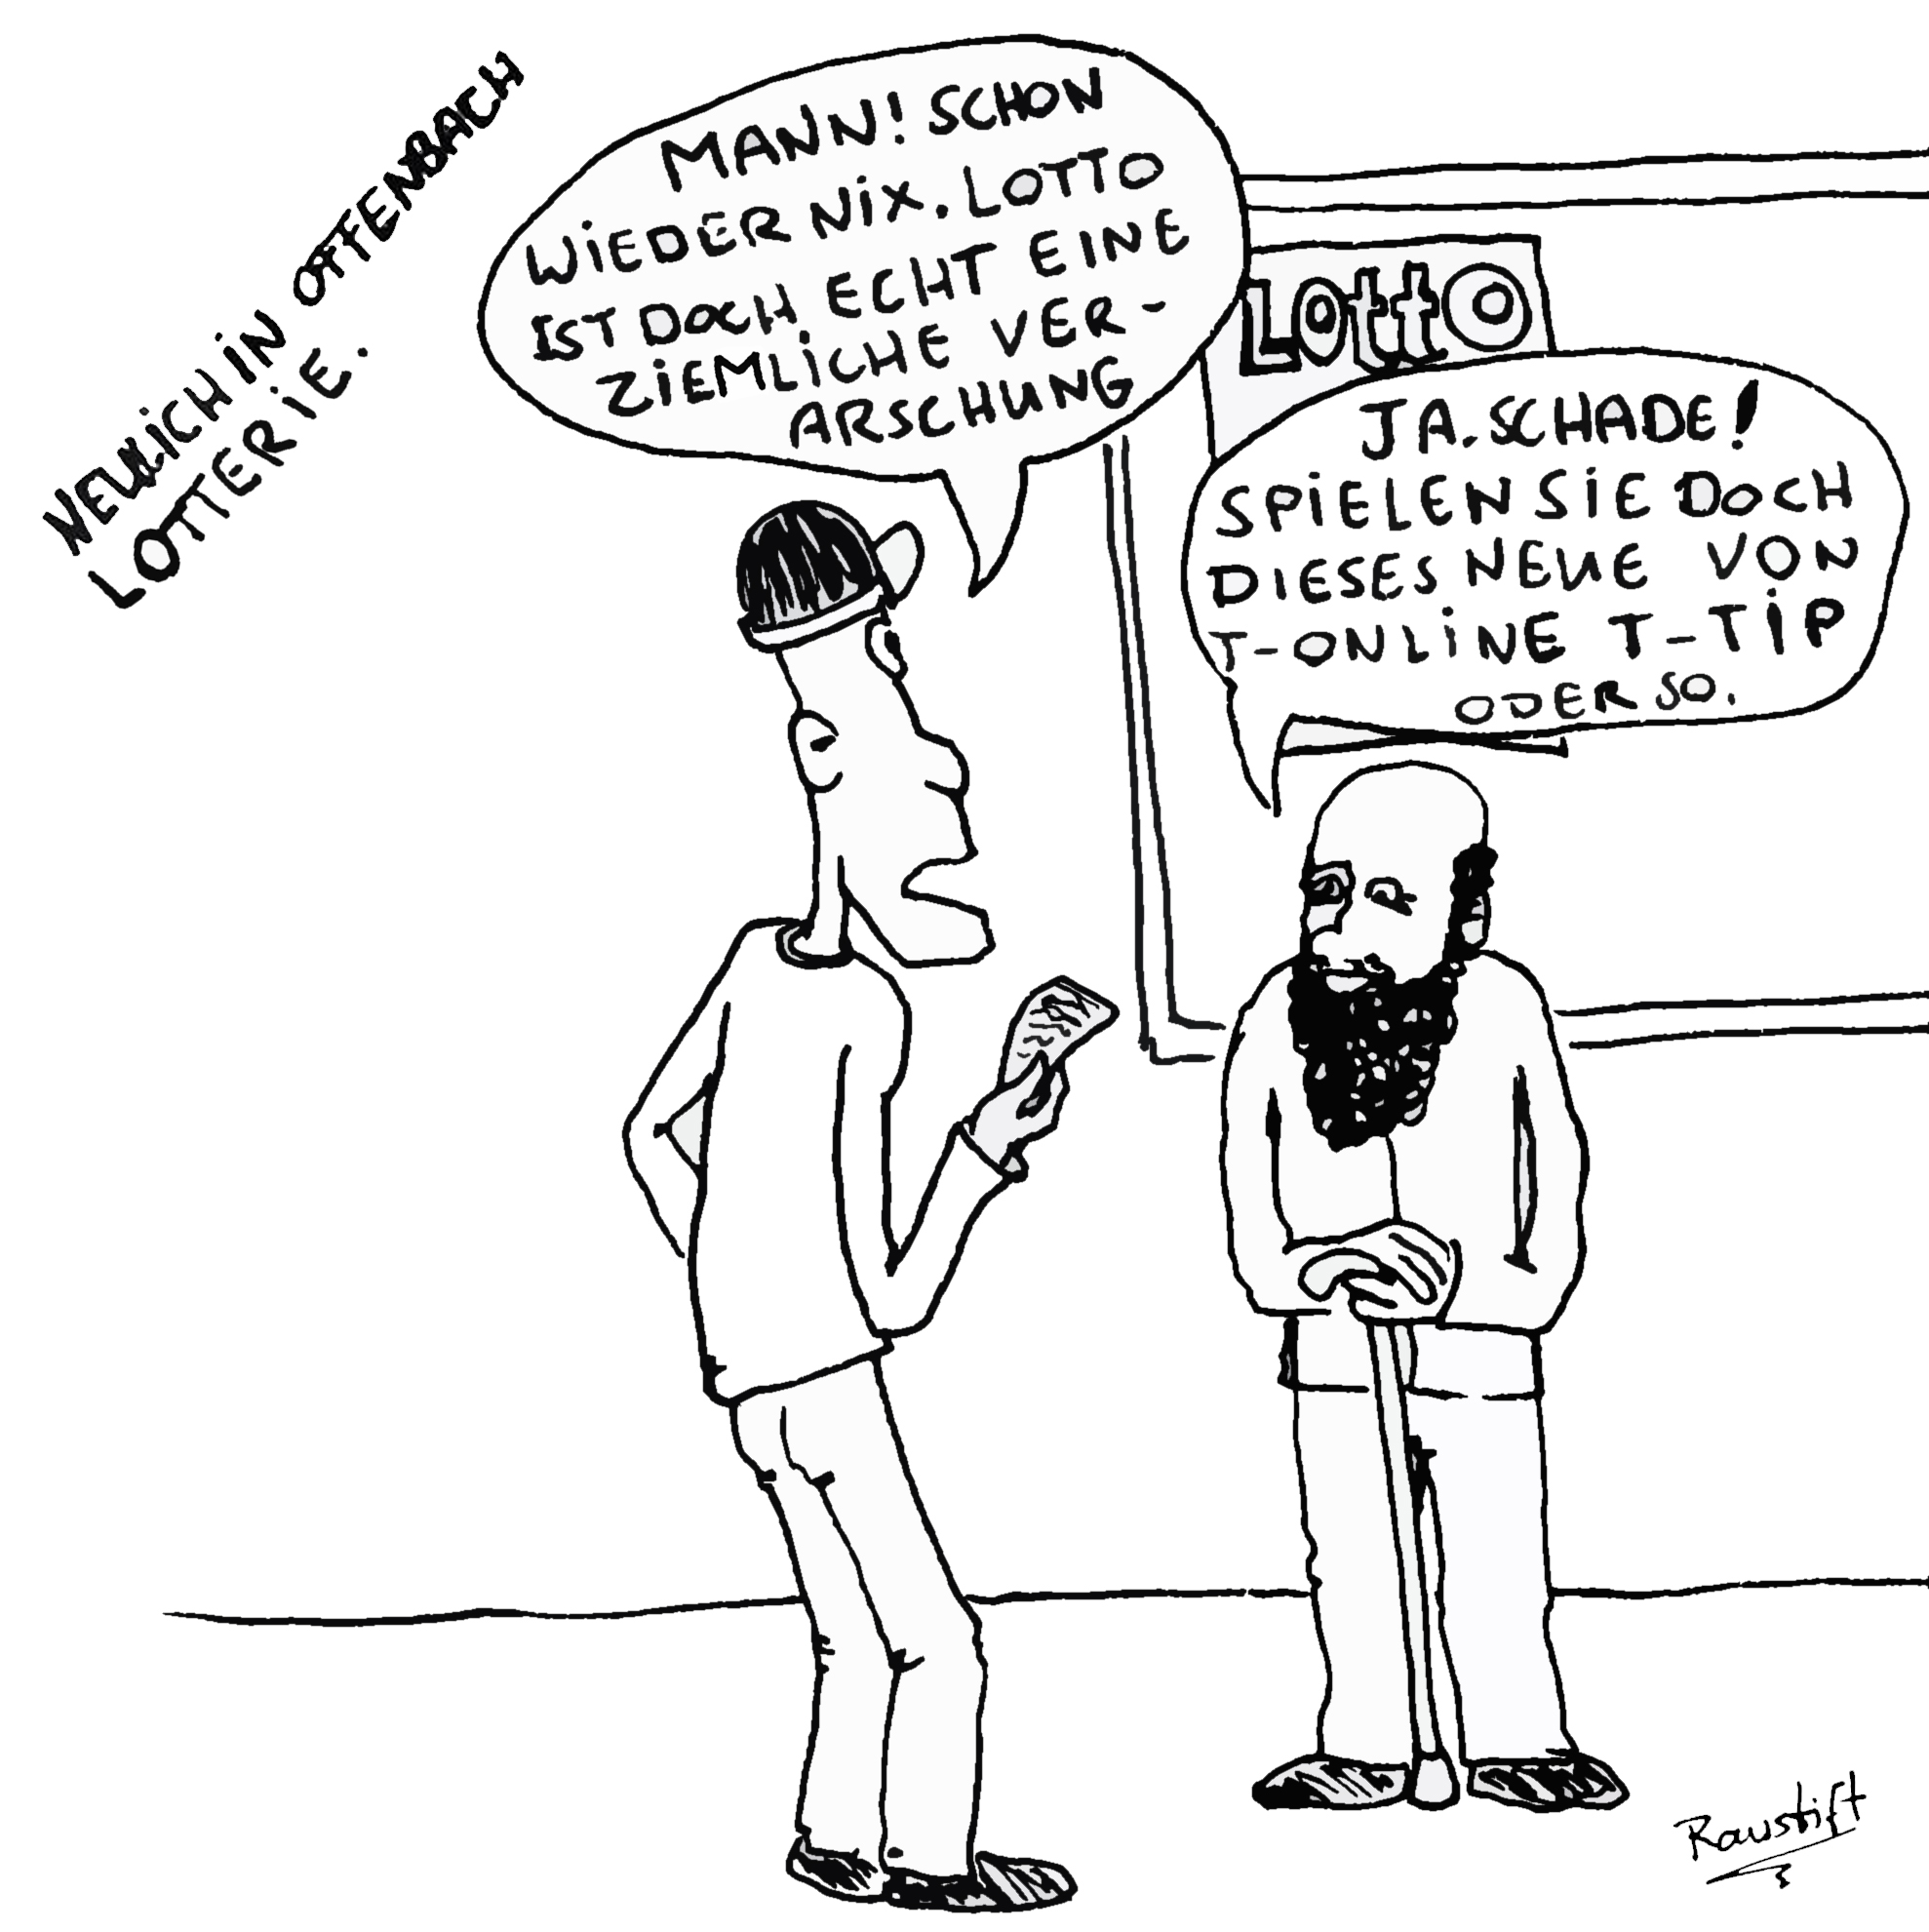 NEULICH IN OFFENBACH
LOTTERIE.
MANN! SCHON
WIEDER NIX. LOTTO
IST DOCH ECHT EINE
ZIEMLICHE VER-
ARSCHUNG
Lotto
JA. SCHADE!
SPIELEN SIE DOCH
DIESES NEUE VON
T-ONLINE T-TIP
ODER SO.
Rawstift